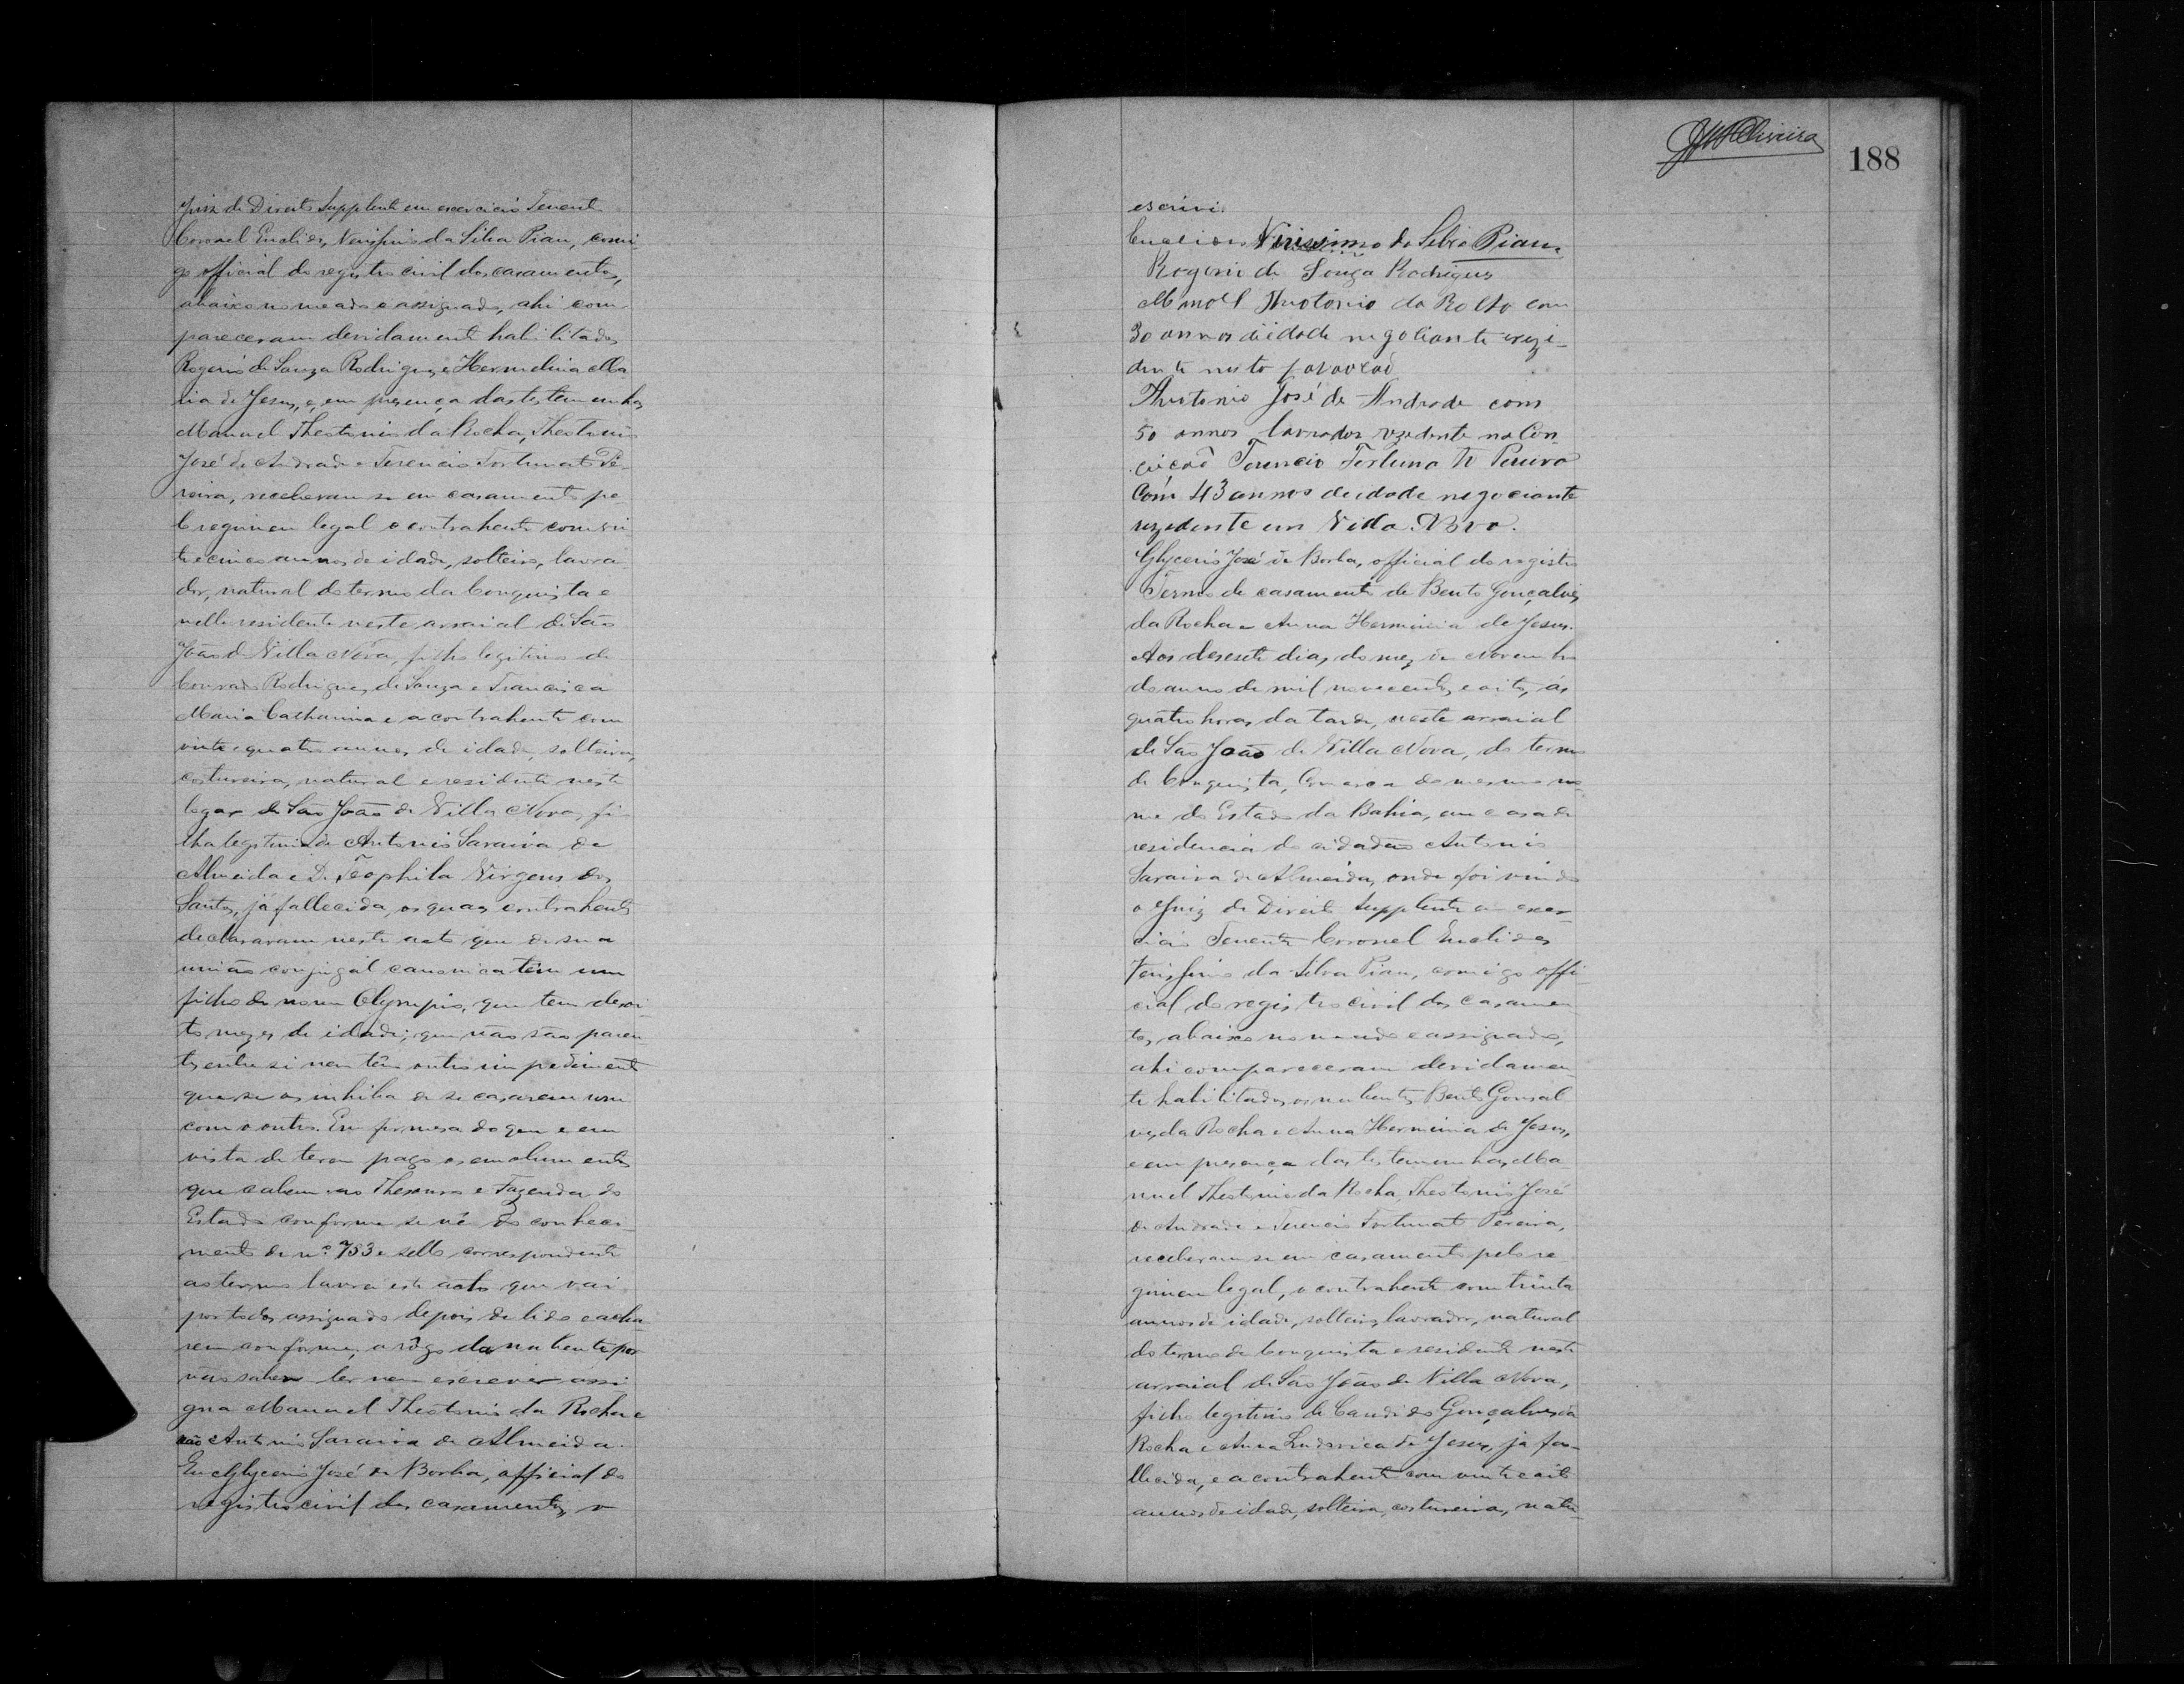 Juiz de Direito Supplente em exercicio Tenente
Coronel Euclides Verissimo da Silva Piau, comi-
go official do registro civil dos casamentos,
abaixo nomeado e assignado, ahi com-
pareceram devidamente habilitados
Rogerio de Souza Rodrigues e Hermelina Ma-
ria de Jesus, e, em presença das testemunhas
Manuel Theotonio da Rocha, Theotonio
José de Andrade e Terencio Fortunato Pe-
reira, receberam-se em casamento pe-
lo regimen legal o contrahente com vin-
te e cinco annos de idade, solteiro, lavra-
dor, natural do termo da Conquista e
nelle residente neste arraial de São
João de Villa Nova, filho legitimo de
Conrado Rodrigues de Souza e Francisca
Maria Catharina e a contrahente com
vinte e quatro annos de idade, solteira,
costureira, natural e residente neste
logar de São João de Villa Nova, fi-
lha legitima de Antonio Saraiva de
Almeida e D. Teophila Virgens dos
Santos, já fallecida, os quaes contrahentes
declararam neste acto que de sua
união conjugal canonica têm um
filho de nome Olympio, que tem desoi-
to mezes de idade; que não são paren-
tes entre si nem têm outro impedimento
que os inhiba de se casarem um
com o outro. Em firmesa do que e em
vista de terem pago os emolumentos
que cabem ao Thesouro e Fazenda do
Estado conforme se vê do conheci-
mento de nº 753 e sello correspondente
ao termo lavrei este acto que vai
por todos assignado depois de lido e acha-
rem conforme, a rôgo da nubente por
não saber ler nem escrever assi-
gna Manuel Theotonio da Rocha e
não Antonio Saraiva de Almeida.
Eu Glycerio José de Borba, official do
registro civil dos casamentos, o
188
escrivi.
Euclides Virissimo da Silva Piau
Rogerio de Souza Rodrigues
Manoel Theotonio da Rocha com
30 annos de idade negociante rezi-
dente nesta povoacaõ
Theotonio José de Andrade com
50 annos lavrador rezidente na Con-
ceicaõ Terencio Fortunato Pereira
Com 43 annos de idade negociante
rezidente em Villa Nova.
Glycerio José de Borba, official do registro
Termo de casamento de Bento Gonçalves
da Rocha e Anna Herminia de Jesus.
Aos desesete dias do mez de Novembro
do anno de mil novecentos e oito, ás
quatro horas da tarde, neste arraial
de São João de Villa Nova, do termo
de Conquista, Comarca do mesmo no-
me do Estado da Bahia, em casa de
residencia do cidadão Antonio
Saraiva de Almeida, onde foi vindo
o Juiz de Direito Supplente em exer-
cicio Tenente Coronel Euclides
Verissimo da Silva Piau, comigo offi-
cial do registro civil dos casamen-
tos, abaixo nomeado e assignado,
ahi compareceram devidamen-
te habilitados os nubentes Bento Gonsal-
ves da Rocha e Anna Herminia de Jesus,
e em presença das testemunhas Ma-
nuel Theotonio da Rocha, Theotonio José
de Andrade e Terencio Fortunato Pereira,
receberam-se em casamento pelo re-
gimen legal, o contrahente com trinta
annos de idade, solteiro, lavrador, natural
do termo de Conquista e residente neste
arraial de São João de Villa Nova,
filho legitimo de Candido Gonçalves da
Rocha e Anna Ludovica de Jesus, já fal-
lecida, e a contrahente com vinte e oito
annos de idade, solteira, costureira, natu-